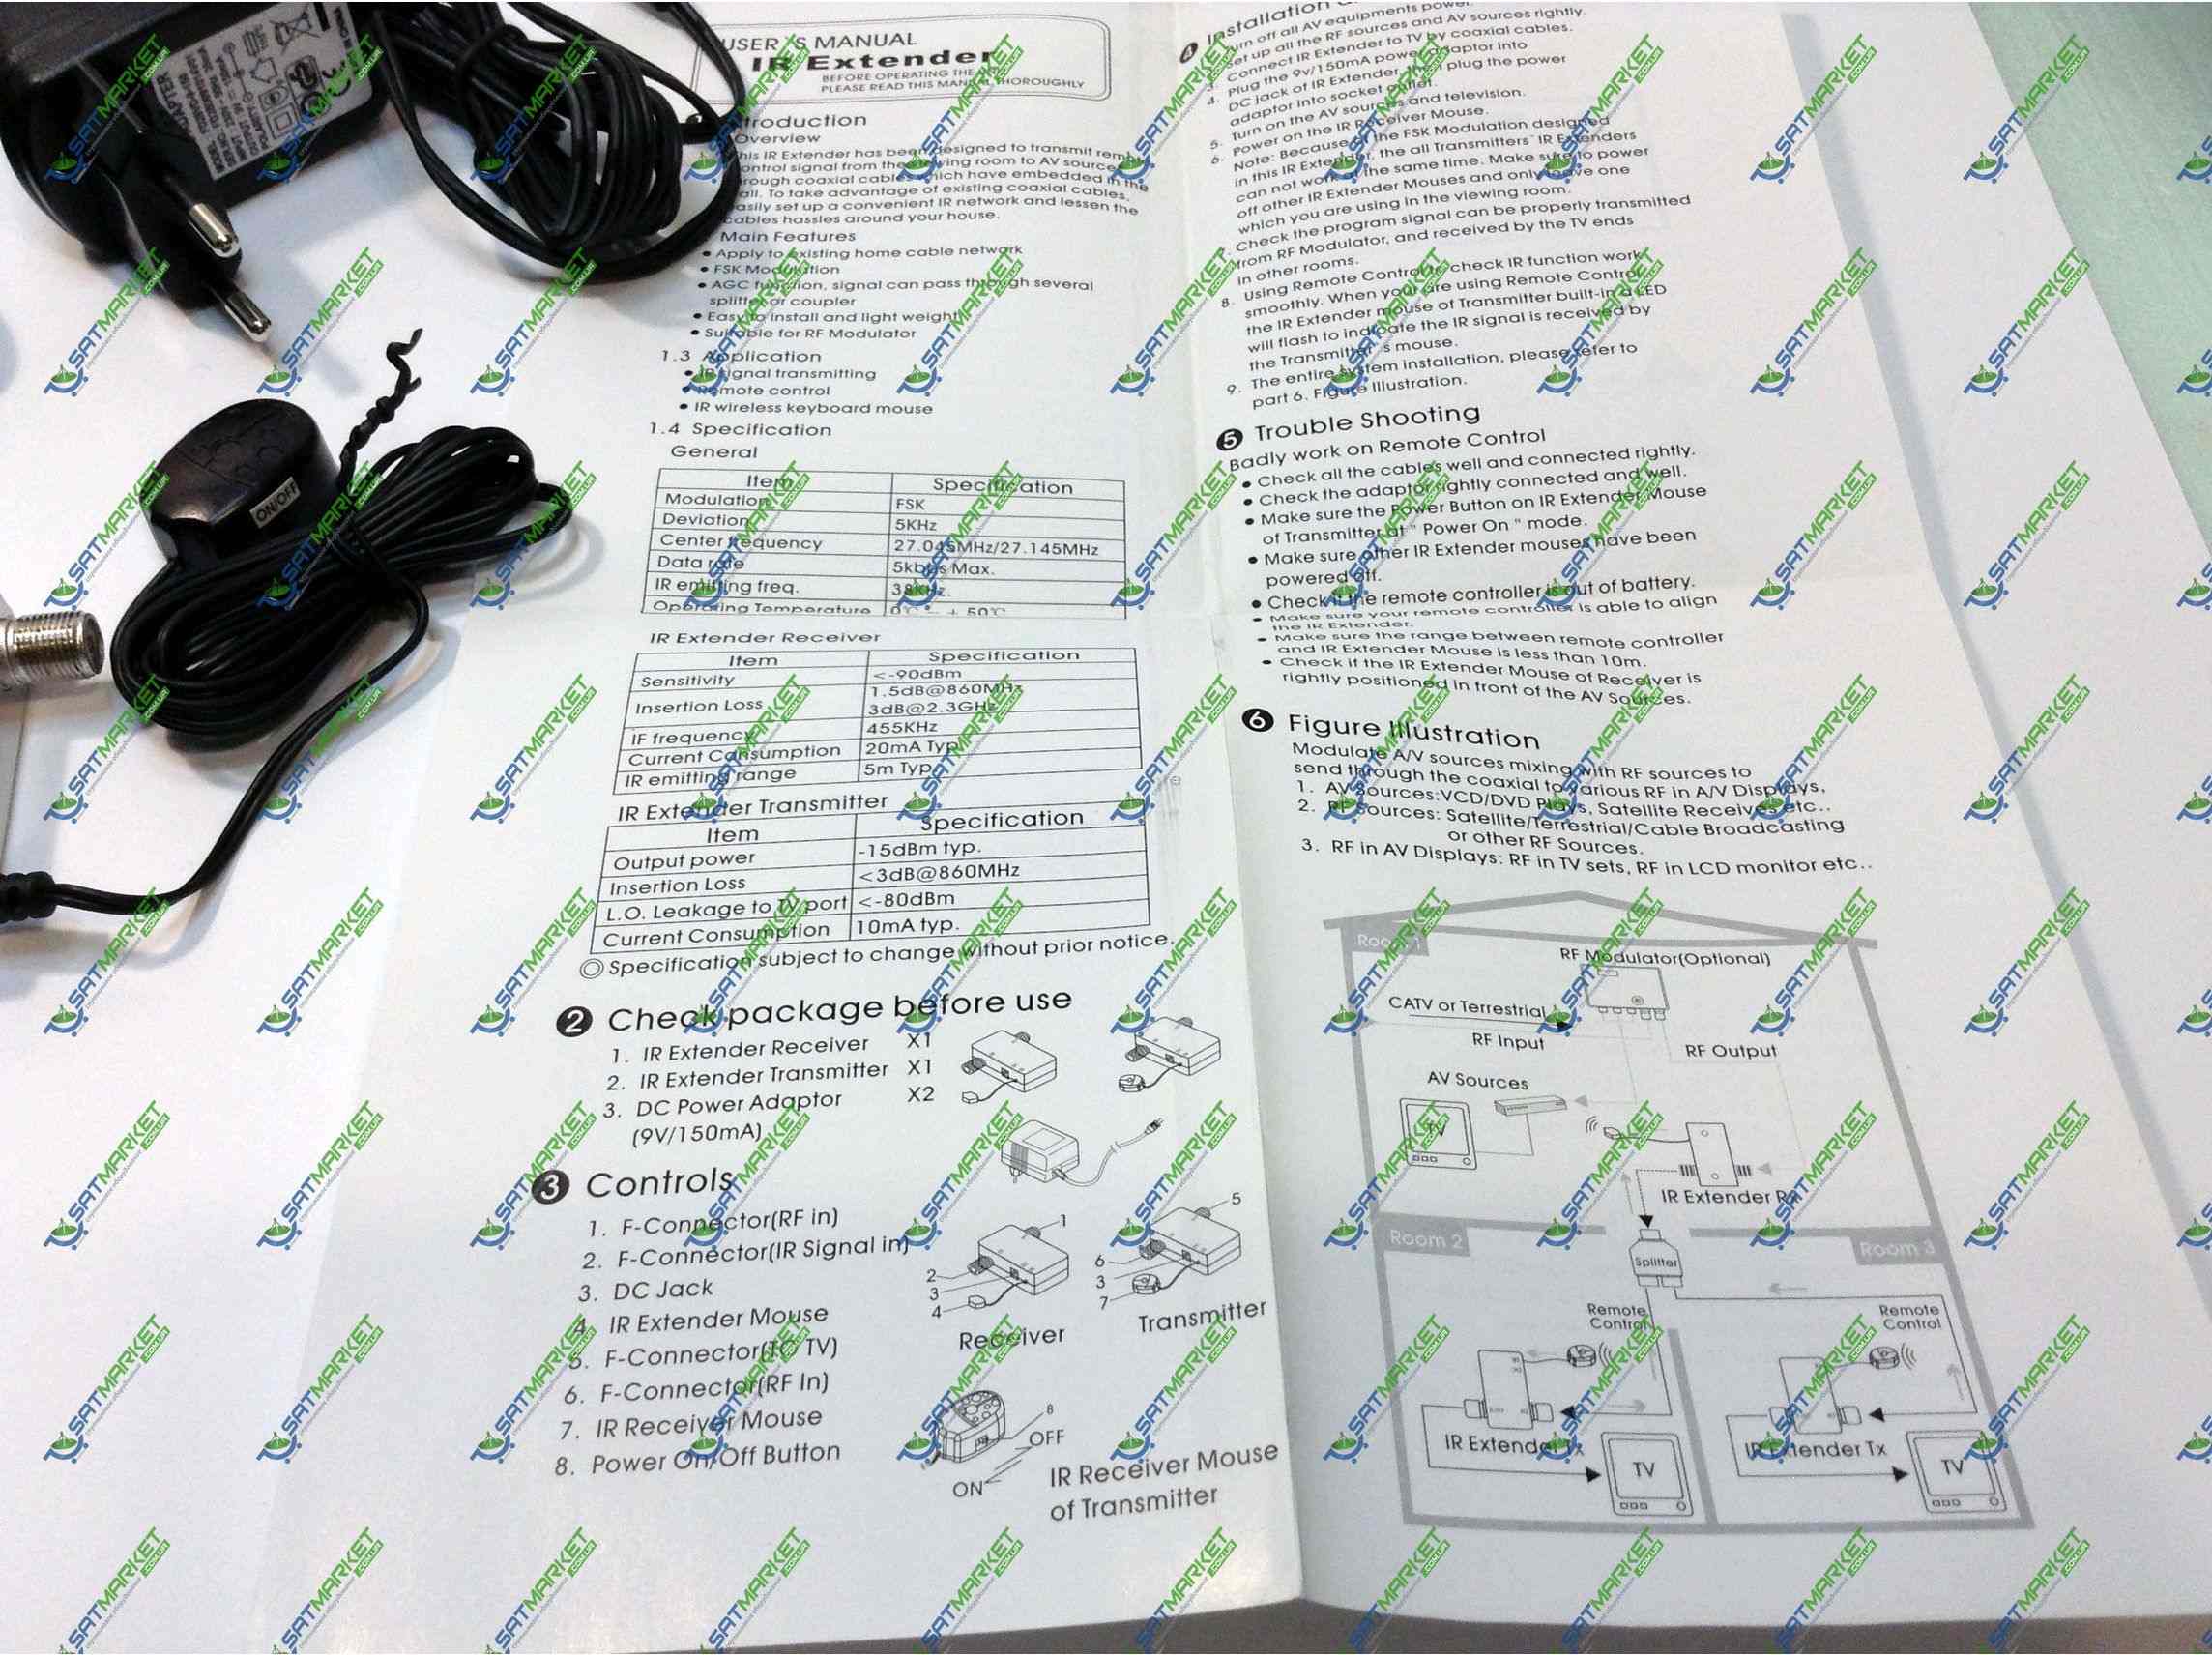 USER'S MANUAL
IR Extender
BEFORE OPERATING THE
PLEASE READ THIS MANUAL THOROUGHLY
troduction
Overview
his IR Extender has been designed to transmit remo
ontrol signal from the viewing room to AV source
rough coaxial cables which have embedded in the
all. To take advantage of existing coaxial cables,
asily set up a convenient IR network and lessen the
cables hassles around your house.
Main Features
• Apply to existing home cable network
• FSK Modulation
• AGC function, signal can pass through several
splitter or coupler
• Easy to install and light weight
• Suitable for RF Modulator
1.3 Application
• IR signal transmitting
• Remote control
• IR wireless keyboard mouse
1.4 Specification
General
Item Specification
Modulation FSK
Deviation 5KHz
Center frequency 27.045MHz/27.145MHz
Data rate 5kbps Max.
IR emitting freq. 38KHz.
Operating Temperature 0°C + 50°C
IR Extender Receiver
Item Specification
Sensitivity <-90dBm
Insertion Loss 1.5dB@860MHz
3dB@2.3GHz
IF frequency 455KHz
Current Consumption 20mA Typ
IR emitting range 5m Typ
IR Extender Transmitter
Item Specification
Output power -15dBm typ.
Insertion Loss <3dB@860MHz
L.O. Leakage to TV port <-80dBm
Current Consumption 10mA typ.
◎ Specification subject to change without prior notice.
2 Check package before use
1. IR Extender Receiver X1
2. IR Extender Transmitter X1
3. DC Power Adaptor X2
(9V/150mA)
3 Controls
1. F-Connector(RF in)
2. F-Connector(IR Signal in)
3. DC Jack
4. IR Extender Mouse
5. F-Connector(TO TV)
6. F-Connector(RF In)
7. IR Receiver Mouse
8. Power On/Off Button
1
2
3
4
Receiver
5
6
3
7
Transmitter
8
OFF
ON
IR Receiver Mouse
of Transmitter
4 Installation
Turn off all AV equipments power.
Set up all the RF sources and AV sources rightly.
Connect IR Extender to TV by coaxial cables.
4. Plug the 9v/150mA power adaptor into
DC jack of IR Extender plug the power
adaptor into socket outlet.
5. Turn on the AV sources and television.
6. Power on the IR Receiver Mouse.
Note: Because the FSK Modulation designed
in this IR Extender, the all Transmitters' IR Extenders
can not work at the same time. Make sure to power
off other IR Extender Mouses and only leave one
which you are using in the viewing room.
7. Check the program signal can be properly transmitted
from RF Modulator, and received by the TV ends
in other rooms.
8. Using Remote Control to check IR function work
smoothly. When your are using Remote Control,
the IR Extender mouse of Transmitter built-in a LED
will flash to indicate the IR signal is received by
the Transmitter's mouse.
9. The entire system installation, please refer to
part 6. Figure Illustration.
5 Trouble Shooting
Badly work on Remote Control
• Check all the cables well and connected rightly.
• Check the adaptor rightly connected and well.
• Make sure the Power Button on IR Extender Mouse
of Transmitter at " Power On " mode.
• Make sure other IR Extender mouses have been
powered off.
• Check if the remote controller is out of battery.
• Make sure your remote controller is able to align
the IR Extender.
• Make sure the range between remote controller
and IR Extender Mouse is less than 10m.
• Check if the IR Extender Mouse of Receiver is
rightly positioned in front of the AV Sources.
6 Figure Illustration
Modulate A/V sources mixing with RF sources to
send through the coaxial to various RF in A/V Displays,
1. AV Sources:VCD/DVD Plays, Satellite Receives etc..
2. RF Sources: Satellite/Terrestrial/Cable Broadcasting
or other RF Sources.
3. RF in AV Displays: RF in TV sets, RF in LCD monitor etc..
Room 1
RF Modulator(Optional)
CATV or Terrestrial
RF Input
RF Output
AV Sources
TV
IR Extender Rx
Room 2
Splitter
Room 3
Remote
Control
Remote
Control
IR Extender Tx
TV
IR Extender Tx
TV
ON/OFF
ADAPTER
SATMARKET
.COM.UA